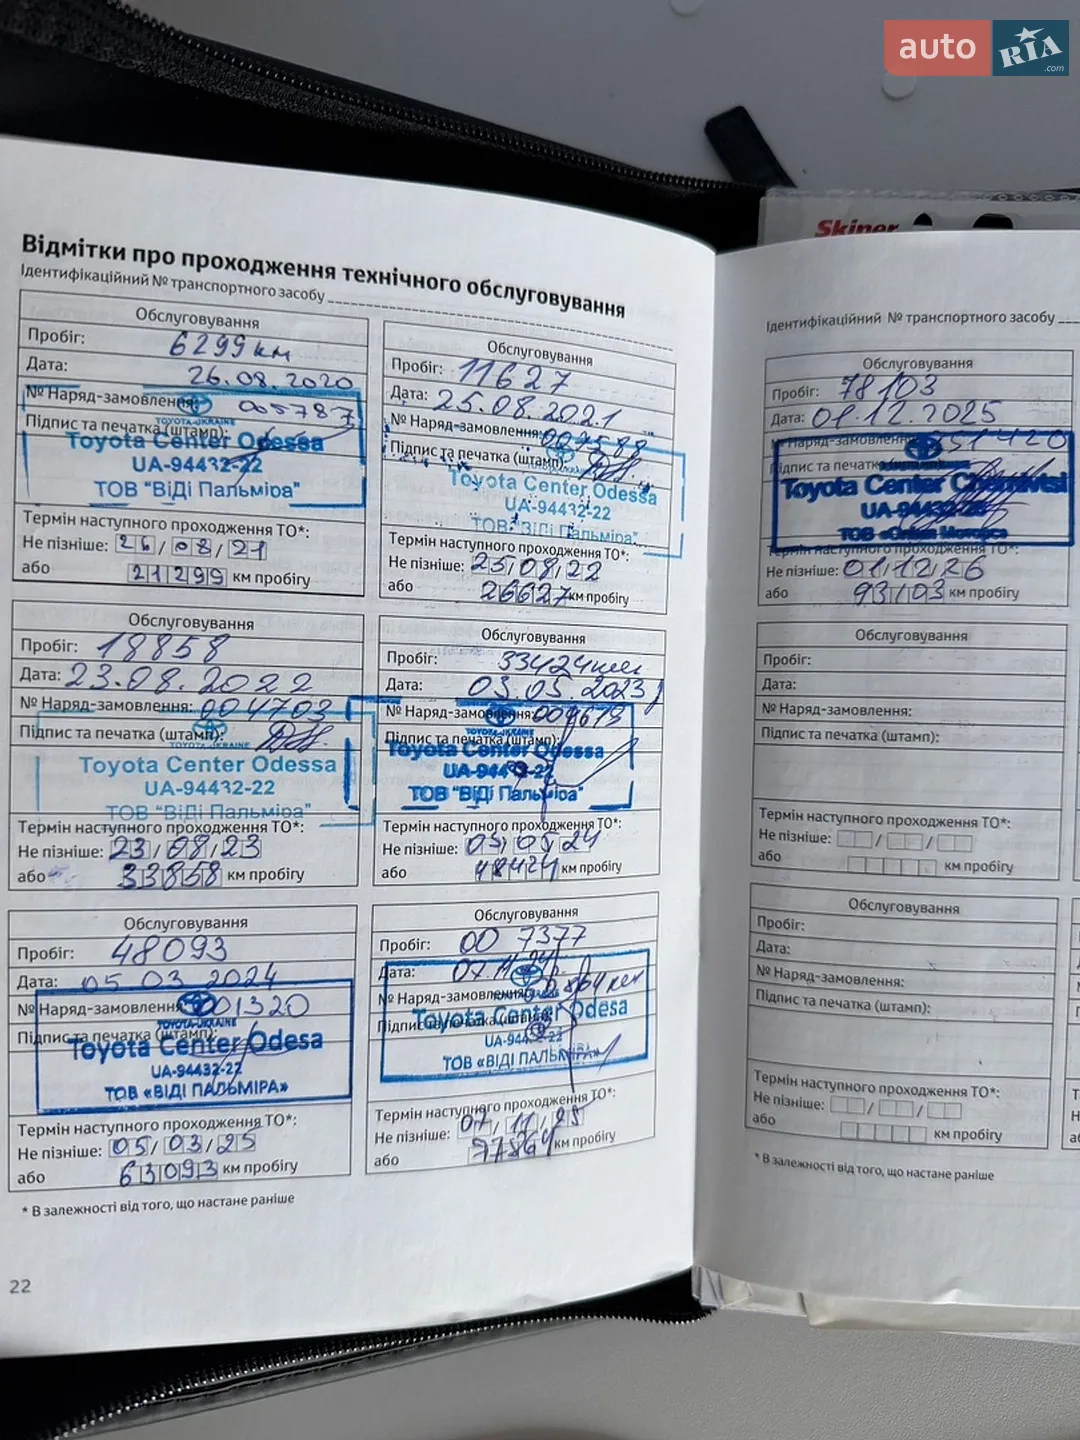 auto RIA.com
Skiper
Відмітки про проходження технічного обслуговування
Ідентифікаційний № транспортного засобу
Обслуговування
Пробіг: 6299 км
Дата: 26.08.2020
№ Наряд-замовлення: 005787
Підпис та печатка (штамп):
TOYOTA-UKRAINE
Toyota Center Odessa
UA-94432-22
ТОВ "ВіДі Пальміра"
Термін наступного проходження ТО*:
Не пізніше: 26/08/21
або 21299 км пробігу
Обслуговування
Пробіг: 11627
Дата: 25.08.2021
№ Наряд-замовлення: 007588
Підпис та печатка (штамп):
Toyota Center Odessa
UA-94432-22
ТОВ "ВіДі Пальміра"
Термін наступного проходження ТО*:
Не пізніше: 25/08/22
або 26627 км пробігу
Обслуговування
Пробіг: 18858
Дата: 23.08.2022
№ Наряд-замовлення: 004703
Підпис та печатка (штамп):
TOYOTA-UKRAINE
Toyota Center Odessa
UA-94432-22
ТОВ "ВіДі Пальміра"
Термін наступного проходження ТО*:
Не пізніше: 23/08/23
або 33858 км пробігу
Обслуговування
Пробіг: 33424 км
Дата: 03.05.2023
№ Наряд-замовлення:
Підпис та печатка (штамп):
TOYOTA-UKRAINE
Toyota Center Odessa
UA-94432-22
ТОВ "ВіДі Пальміра"
Термін наступного проходження ТО*:
Не пізніше: 03/05/24
або 48424 км пробігу
Обслуговування
Пробіг: 48093
Дата: 05 03 2024
№ Наряд-замовлення: 001320
Підпис та печатка (штамп):
TOYOTA-UKRAINE
Toyota Center Odesa
UA-94432-22
ТОВ «ВІДІ ПАЛЬМІРА»
Термін наступного проходження ТО*:
Не пізніше: 05/03/25
або 63093 км пробігу
Обслуговування
Пробіг: 00 7377
Дата: 07.11.24
№ Наряд-замовлення:
Підпис та печатка (штамп):
Toyota Center Odesa
UA-94432-22
ТОВ «ВІДІ ПАЛЬМІРА»
Термін наступного проходження ТО*:
Не пізніше: 07/11/25
або 77864 км пробігу
* В залежності від того, що настане раніше
22
Ідентифікаційний № транспортного засобу
Обслуговування
Пробіг: 78103
Дата: 01.12.2025
№ Наряд-замовлення:
Підпис та печатка
Toyota Center Chernivtsi
UA-94432-26
Термін наступного проходження ТО*:
Не пізніше: 01/12/26
або 93103 км пробігу
Обслуговування
Пробіг:
Дата:
№ Наряд-замовлення:
Підпис та печатка (штамп):
Термін наступного проходження ТО*:
Не пізніше:
або км пробігу
Обслуговування
Пробіг:
Дата:
№ Наряд-замовлення:
Підпис та печатка (штамп):
Термін наступного проходження ТО*:
Не пізніше:
або км пробігу
* В залежності від того, що настане раніше